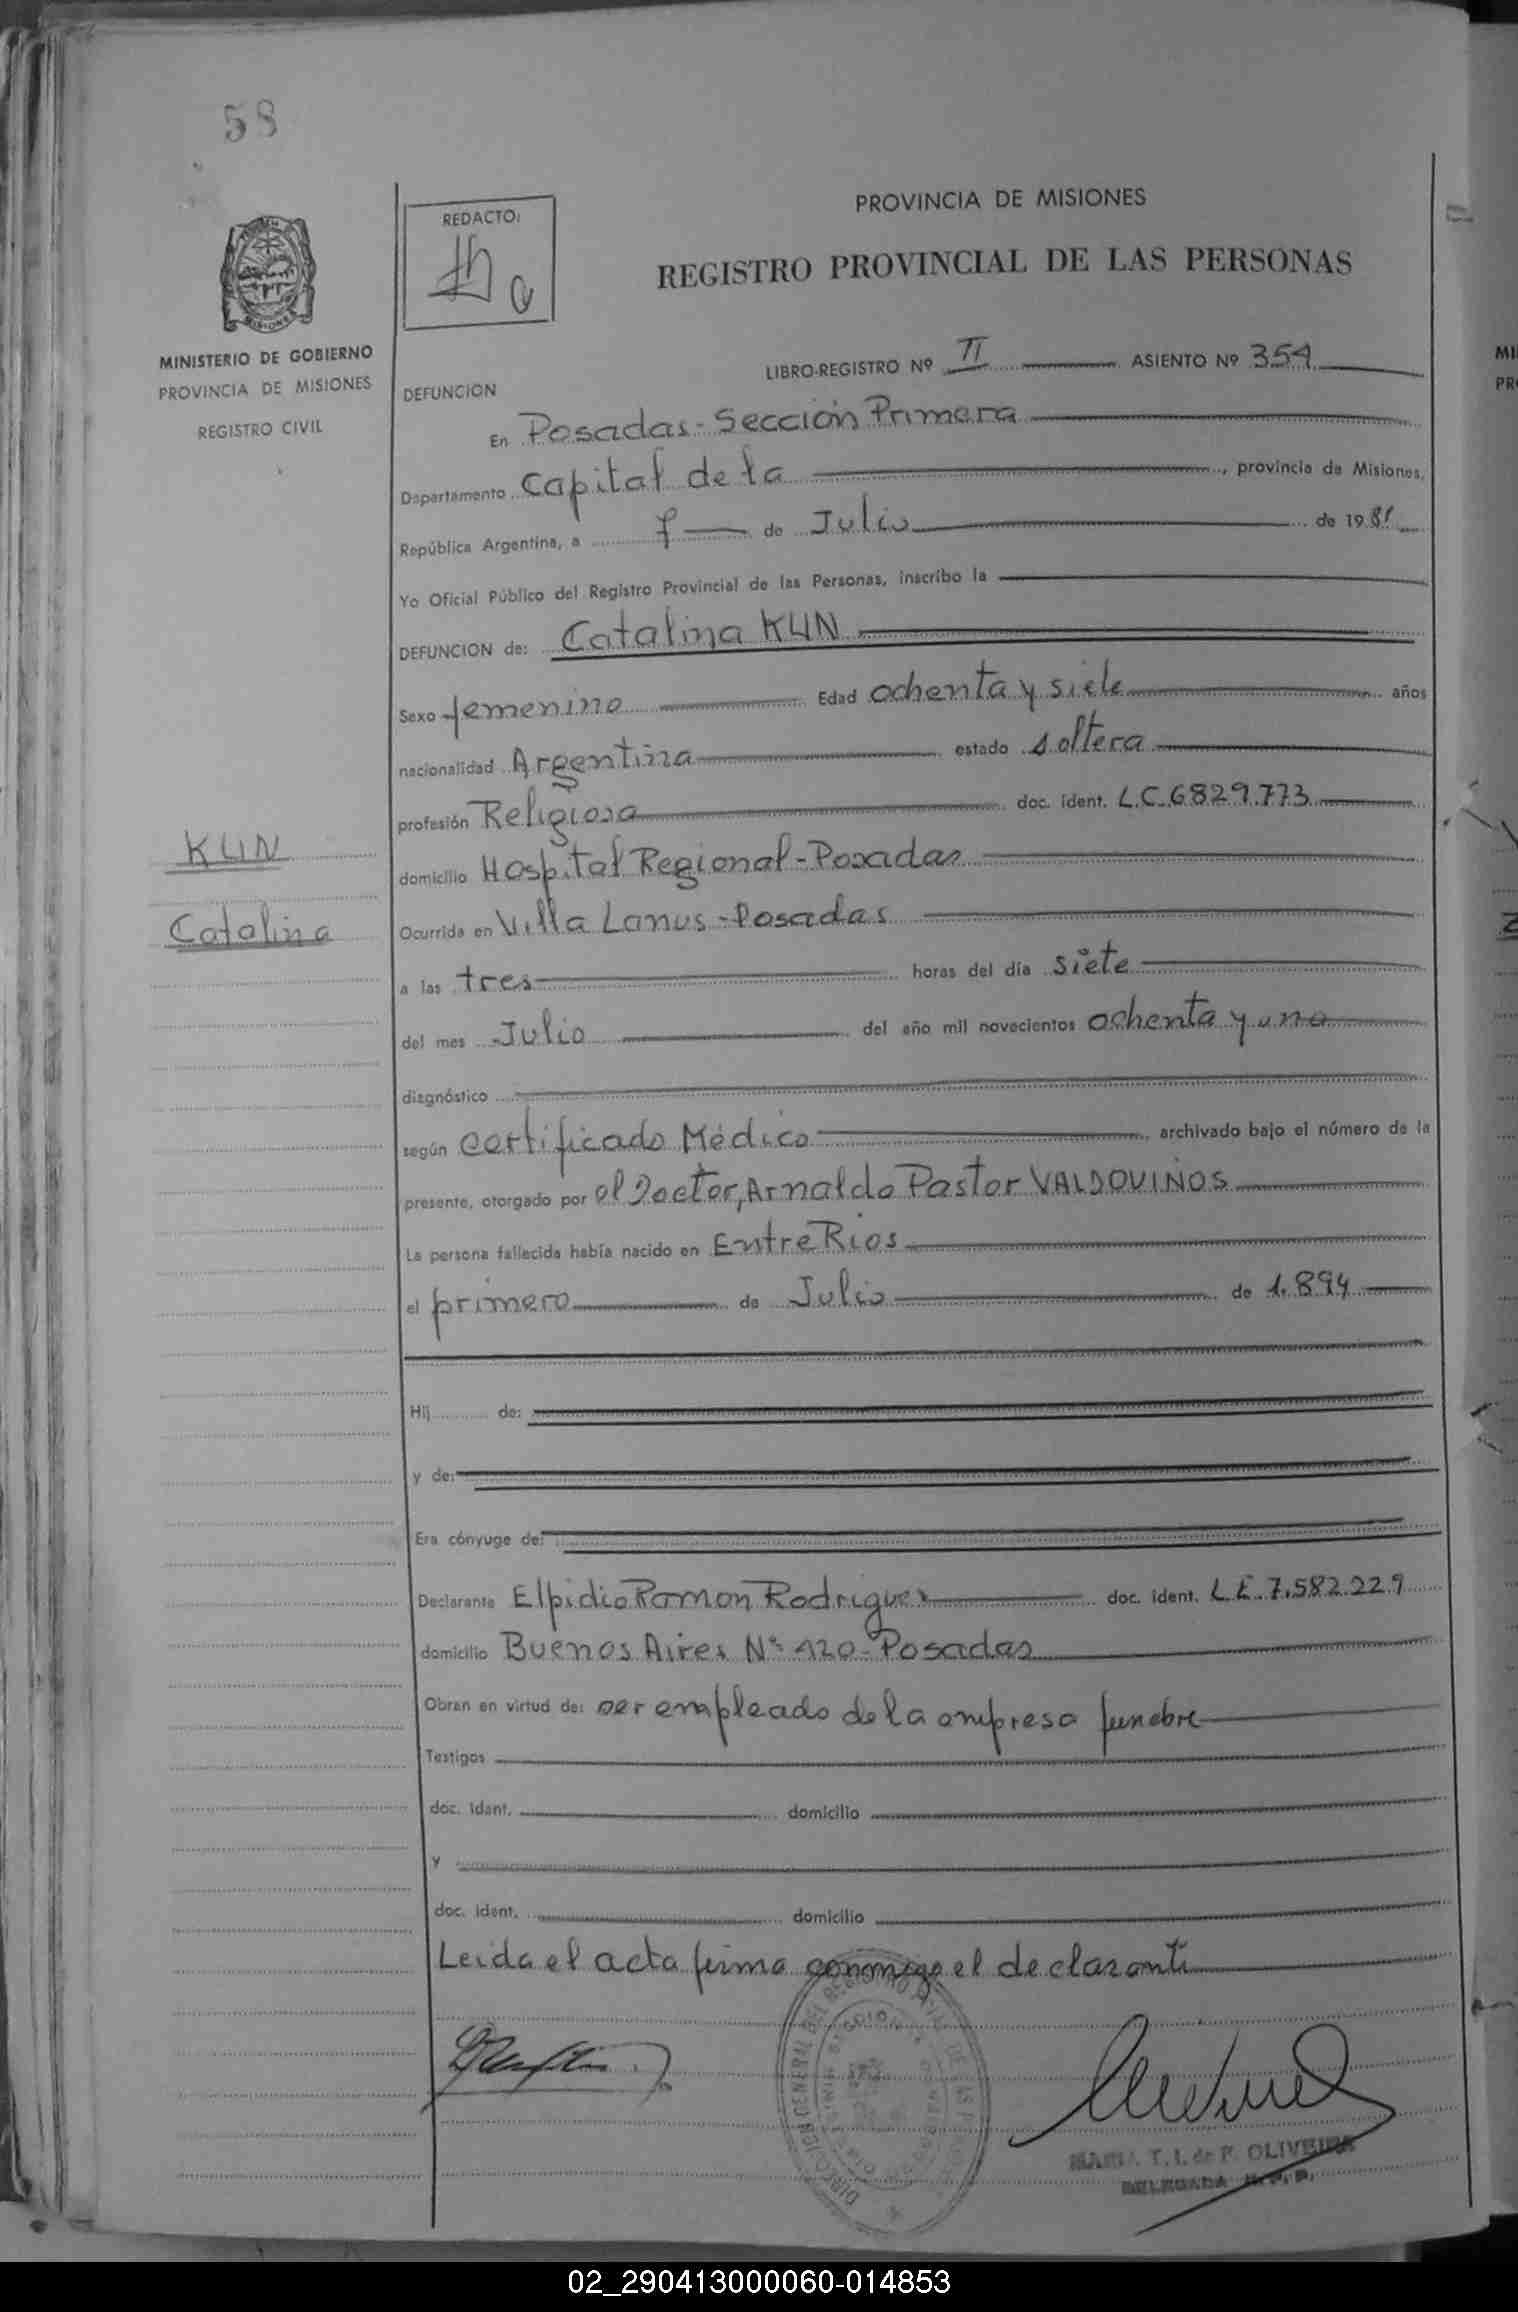 58
REDACTO:
PROVINCIA DE MISIONES
REGISTRO PROVINCIAL DE LAS PERSONAS
MINISTERIO DE GOBIERNO
PROVINCIA DE MISIONES
REGISTRO CIVIL
LIBRO-REGISTRO Nº II ASIENTO Nº 354
DEFUNCION
En Posadas-Sección Primera
Departamento Capital de la, provincia de Misiones,
República Argentina, a 7 de Julio de 1981
Yo Oficial Público del Registro Provincial de las Personas, inscribo la
DEFUNCION de: Catalina KUN
Sexo femenino Edad ochenta y siete años
nacionalidad Argentina estado soltera
profesión Religiosa doc. ident. L.C.6829.773
KUN
domicilio Hospital Regional-Posadas
Catalina
Ocurrida en Villa Lanus-Posadas
a las tres horas del día siete
del mes Julio del año mil novecientos ochenta y uno
diagnóstico
según certificado Médico, archivado bajo el número de la
presente, otorgado por el Doctor, Arnaldo Pastor VALDOVIÑOS
La persona fallecida había nacido en Entre Rios
el primero de Julio de 1.894
Hij de:
y de:
Era cónyuge de:
Declarante Elpidio Ramon Rodriguez doc. ident. L.E.7.582.229
domicilio Buenos Aires Nº 120-Posadas
Obran en virtud de: ser empleado de la empresa funebre
Testigos
doc. ident. domicilio
y
doc. ident. domicilio
Leida el acta firma conmigo el declarante
MARIA T. I. de F. OLIVEIRA
DELEGADA R. P. P.
02_290413000060-014853